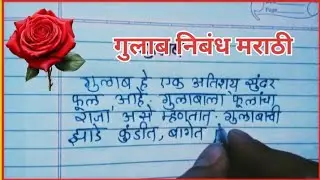 गुलाब निबंध मराठी
गुलाब हे एक अतिशय सुंदर
फूल आहे. गुलाबाला फूलांचा
राजा असे म्हणतात. गुलाबाची
झाडे कुंडीत, बागेत